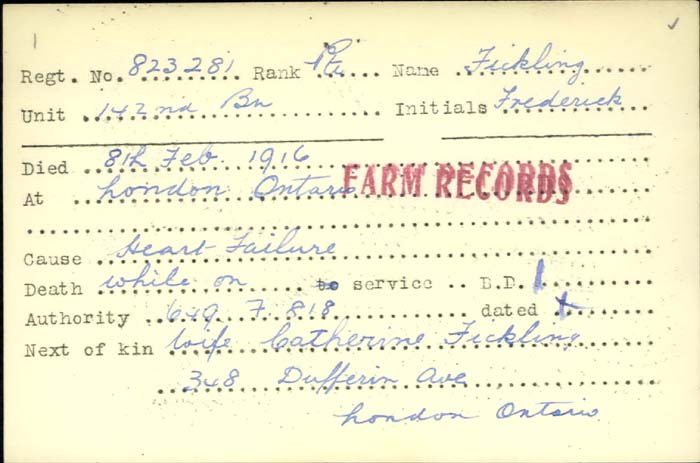 1
Regt. No. 823281 Rank Pte. Name Fickling
Unit 142nd Bn Initials Frederick
Died 8th Feb. 1916
At London Ontario FARM RECORDS
Cause Heart Failure
Death while on to service .. B.D. 1
Authority 649 F. 818 dated
Next of kin Wife Catherine Fickling
348 Dufferin Ave
London Ontario